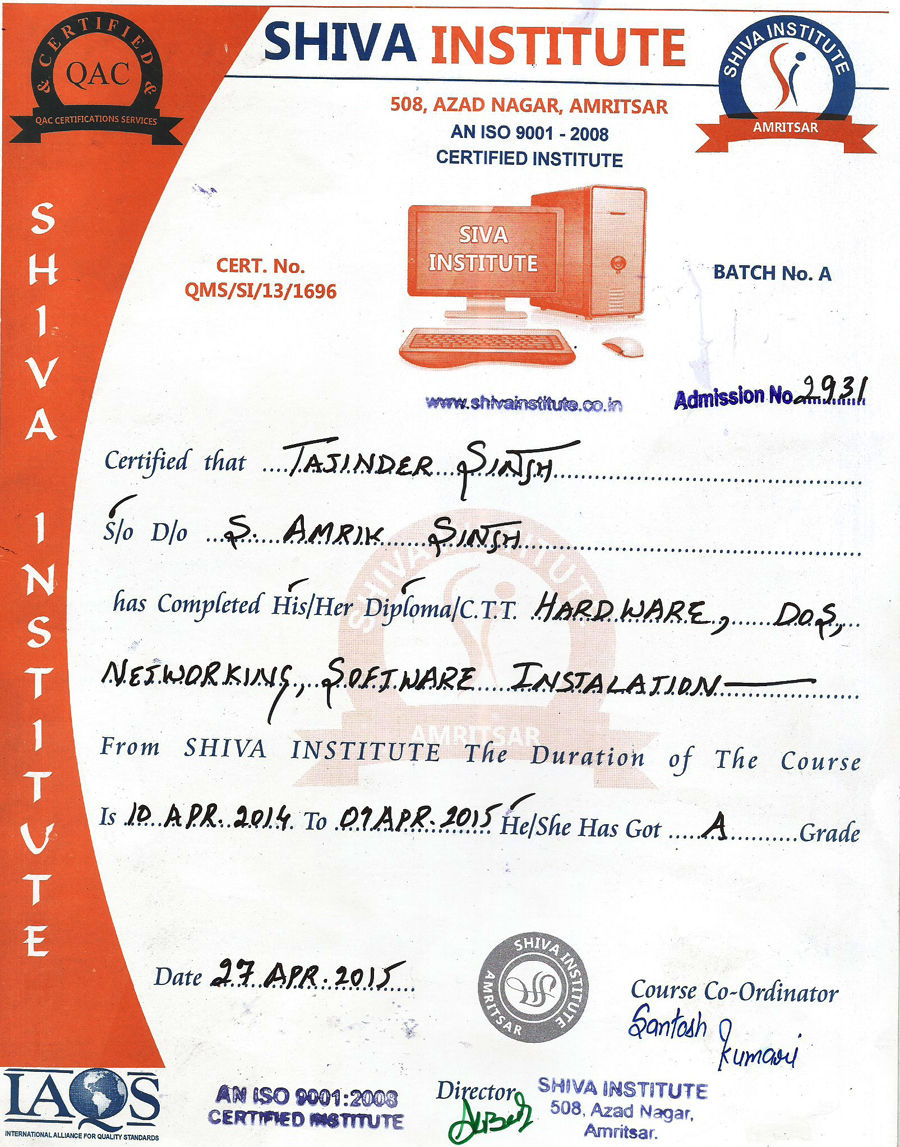 & CERTIFIED &
QAC
QAC CERTIFICATIONS SERVICES
SHIVA INSTITUTE
SHIVA INSTITUTE
AMRITSAR
508, AZAD NAGAR, AMRITSAR
AN ISO 9001 - 2008
CERTIFIED INSTITUTE
SHIVA INSTITUTE
SIVA
INSTITUTE
CERT. No.
QMS/SI/13/1696
BATCH No. A
www.shivainstitute.co.in
Admission No. 2931
Certified that TAJINDER SINGH
S/o D/o S. AMRIK SINGH
SHIVA INSTITUTE
has Completed His/Her Diploma/C.T.T. HARDWARE, DOS,
NETWORKING, SOFTWARE INSTALATION
AMRITSAR
From SHIVA INSTITUTE The Duration of The Course
Is 10 APR. 2014 To 09 APR. 2015 He/She Has Got A Grade
Date 27 APR. 2015
SHIVA INSTITUTE
AMRITSAR
Course Co-Ordinator
Santosh
Kumari
IAQS
INTERNATIONAL ALLIANCE FOR QUALITY STANDARDS
AN ISO 9001:2008
CERTIFIED INSTITUTE
Director
SHIVA INSTITUTE
508, Azad Nagar,
Amritsar.